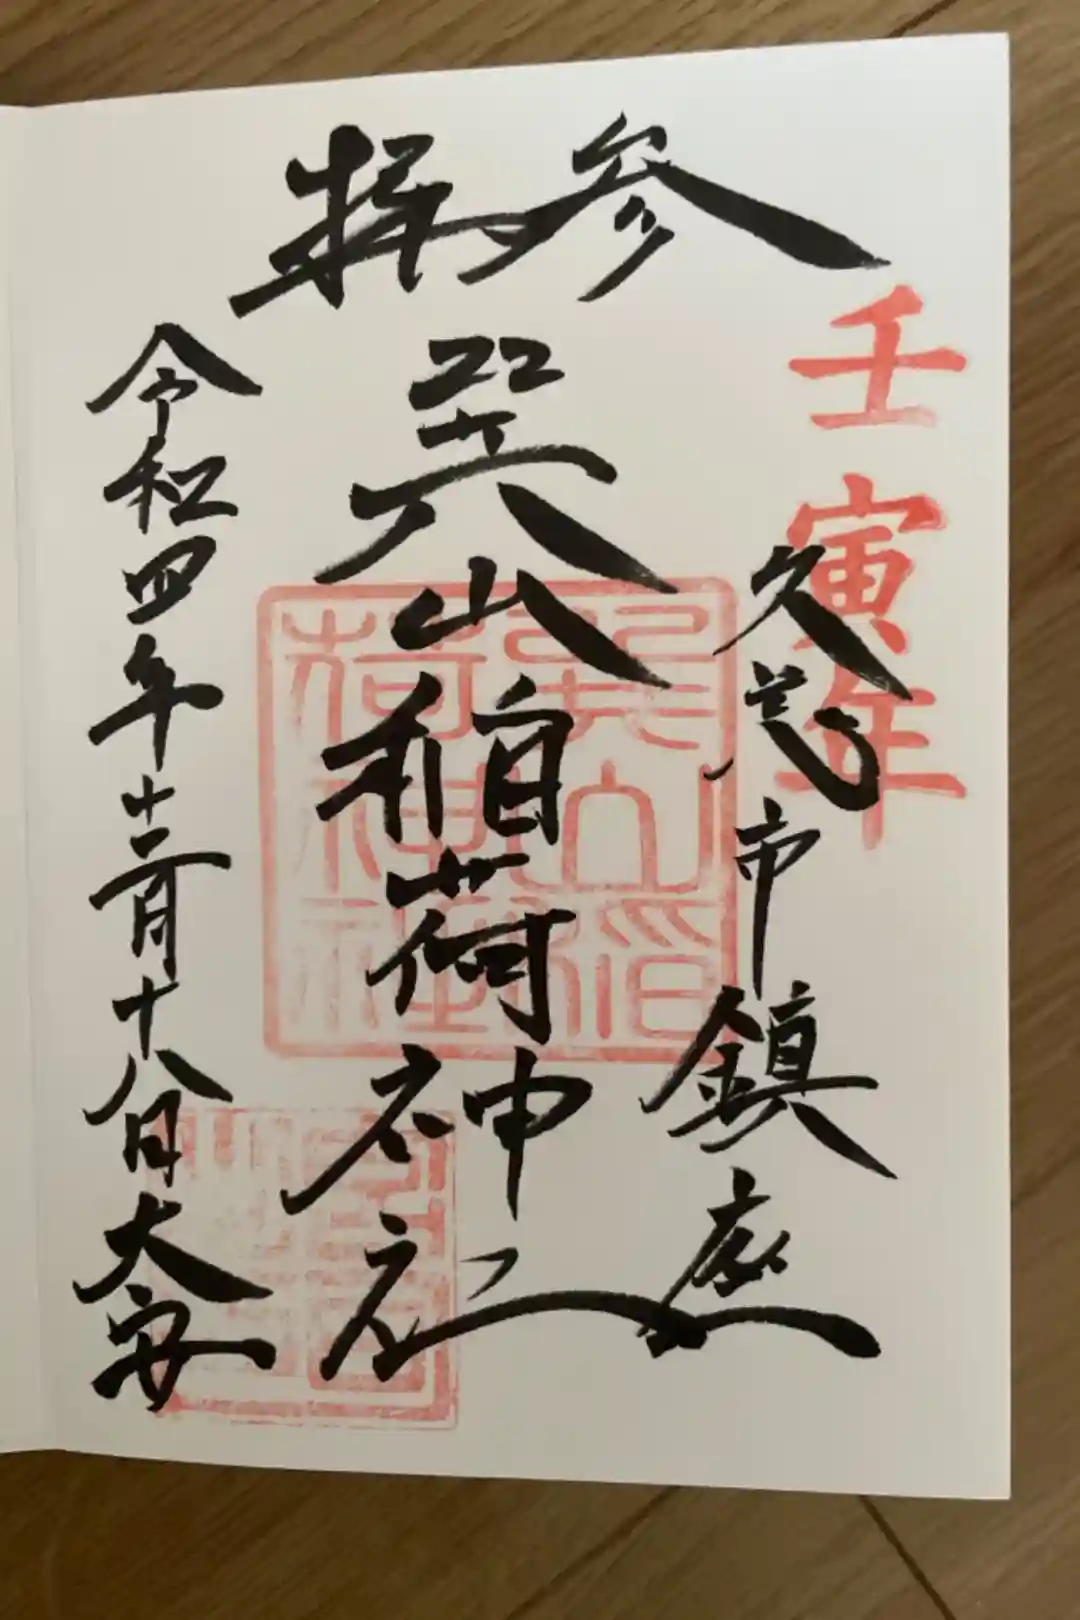 参拝
壬寅年
久慈市鎮座
巽山稲荷神社
令和四年十二月十八日大安
巽山稲荷神社